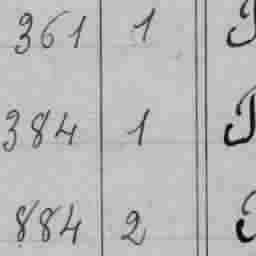 361 1
384 1
884 2